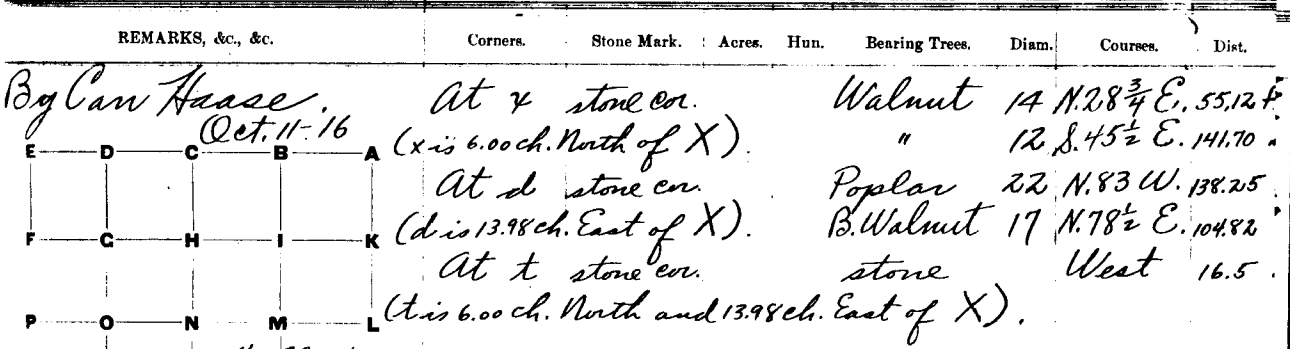 REMARKS, &c., &c. Corners. Stone Mark. Acres. Hun. Bearing Trees. Diam. Courses. Dist.
By Carl Haase. At x stone cor. Walnut 14 N.28 3/4 E. 55.12 f.
Oct. 11-16
E D C B A (x is 6.00 ch. North of X). " 12 S.45 1/2 E. 141.70 "
At d stone cor. Poplar 22 N.83 W. 138.25 "
F G H I K (d is 13.98 ch. East of X). B. Walnut 17 N.78 1/2 E. 104.82 "
At t stone cor. stone West 16.5 "
P O N M L (t is 6.00 ch. North and 13.98 ch. East of X).